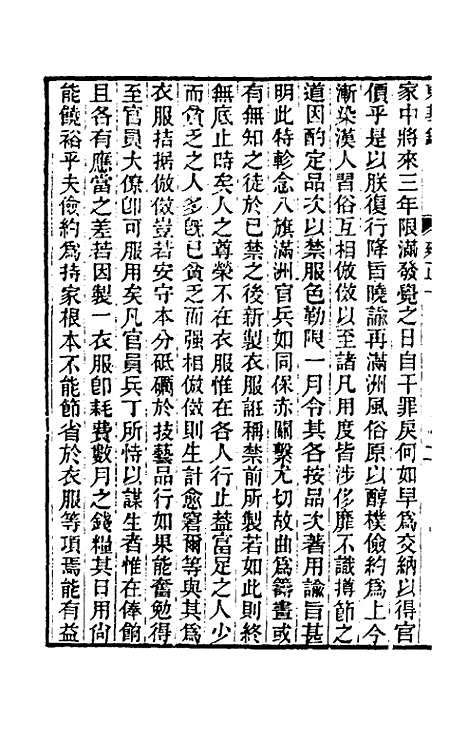 家中將來三年限滿發覺之日自干罪戾何如早爲交納以得官
價乎是以朕復行降旨曉諭再滿洲風俗原以醇樸儉約爲上今
漸染漢人習俗互相倣傚以至諸凡用度皆涉侈靡不識撙節之
道因酌定品次以禁服色勒限一月令其各按品次著用諭旨甚
明此特軫念八旗滿洲官兵如同保赤關繫尤切故曲爲籌畫或
有無知之徒於已禁之後新製衣服誑稱禁前所製若如此則終
無底止時矣人之尊榮不在衣服惟在各人行止葢富足之人少
而貧乏之人多旣已貧乏而强相倣傚則生計愈窘爾等與其爲
衣服拮据倣傚豈若安守本分砥礪於技藝品行如果能奮勉得
至官員大僚卽可服用矣凡官員兵丁所恃以謀生者惟在俸餉
且各有應當之差若因製一衣服卽耗費數月之錢糧其日用尙
能饒裕乎夫儉約爲持家根本不能節省於衣服等項焉能有益